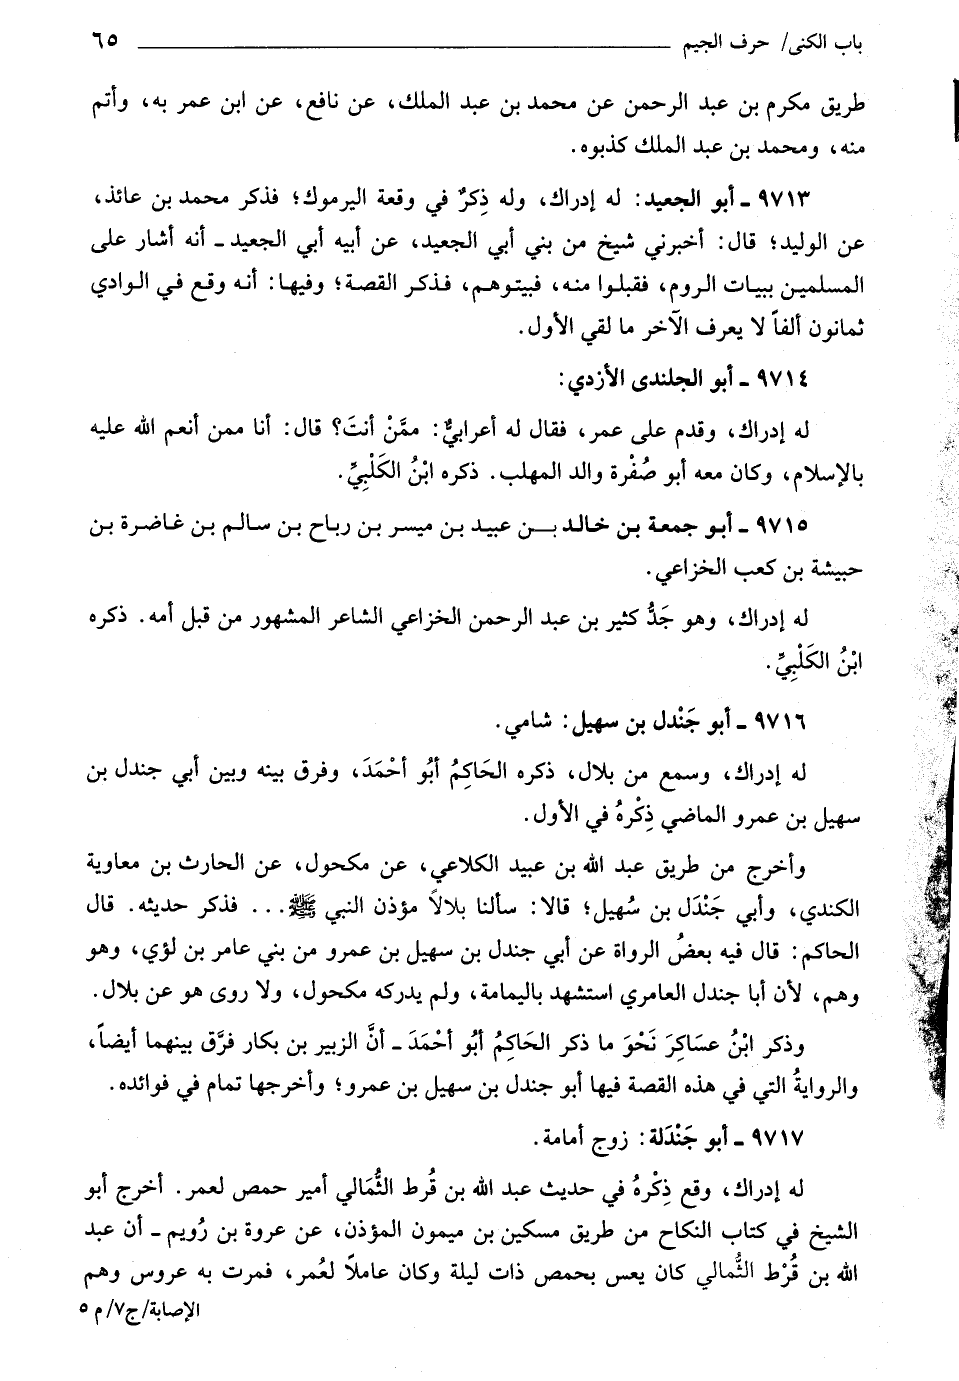 باب الكنى/ حرف الجيم ٦٥
طريق مكرم بن عبد الرحمن عن محمد بن عبد الملك، عن نافع، عن ابن عمر به، وأتم
منه، ومحمد بن عبد الملك كذبوه.
٩٧١٣ ـ أبو الجعيد: له إدراك، وله ذِكرٌ في وقعة اليرموك؛ فذكر محمد بن عائذ،
عن الوليد؛ قال: أخبرني شيخ من بني أبي الجعيد، عن أبيه أبي الجعيد ـ أنه أشار على
المسلمين ببيات الروم، فقبلوا منه، فبيتوهم، فذكر القصة؛ وفيها: أنه وقع في الوادي
ثمانون ألفاً لا يعرف الآخر ما لقي الأول.
٩٧١٤ ـ أبو الجلندى الأزدي:
له إدراك، وقدم على عمر، فقال له أعرابيٌّ: ممَّنْ أنتَ؟ قال: أنا ممن أنعم الله عليه
بالإسلام، وكان معه أبو صُفْرة والد المهلب. ذكره ابْنُ الكَلْبِيِّ.
٩٧١٥ ـ أبو جمعة بن خالد بــن عبيد بن ميسر بن رباح بن سالم بن غاضرة بن
حبيشة بن كعب الخزاعي.
له إدراك، وهو جَدُّ كثير بن عبد الرحمن الخزاعي الشاعر المشهور من قبل أمه. ذكره
ابْنُ الكَلْبِيِّ.
٩٧١٦ ـ أبو جَنْدل بن سهيل: شامي.
له إدراك، وسمع من بلال، ذكره الحَاكِمُ أَبُو أَحْمَدَ، وفرق بينه وبين أبي جندل بن
سهيل بن عمرو الماضي ذِكْرهُ في الأول.
وأخرج من طريق عبد الله بن عبيد الكلاعي، عن مكحول، عن الحارث بن معاوية
الكندي، وأبي جَنْدَل بن سُهيل؛ قالا: سألنا بلالاً مؤذن النبي ﷺ... فذكر حديثه. قال
الحاكم: قال فيه بعضُ الرواة عن أبي جندل بن سهيل بن عمرو من بني عامر بن لؤي، وهو
وهم، لأن أبا جندل العامري استشهد باليمامة، ولم يدركه مكحول، ولا روى هو عن بلال.
وذكر ابْنُ عسَاكِرَ نَحْوَ ما ذكر الحَاكِمُ أبُو أحْمَدَ ـ أنَّ الزبير بن بكار فرَّق بينهما أيضاً،
والروايةُ التي في هذه القصة فيها أبو جندل بن سهيل بن عمرو؛ وأخرجها تمام في فوائده.
٩٧١٧ ـ أبو جَنْدَلة: زوج أمامة.
له إدراك، وقع ذِكْرهُ في حديث عبد الله بن قُرط الثُّمَالي أمير حمص لعمر. أخرج أبو
الشيخ في كتاب النكاح من طريق مسكين بن ميمون المؤذن، عن عروة بن رُويم ـ أن عبد
الله بن قُرْط الثُّمالي كان يعس بحمص ذات ليلة وكان عاملاً لعُمر، فمرت به عروس وهم
الإصابة/ج٧/م ٥